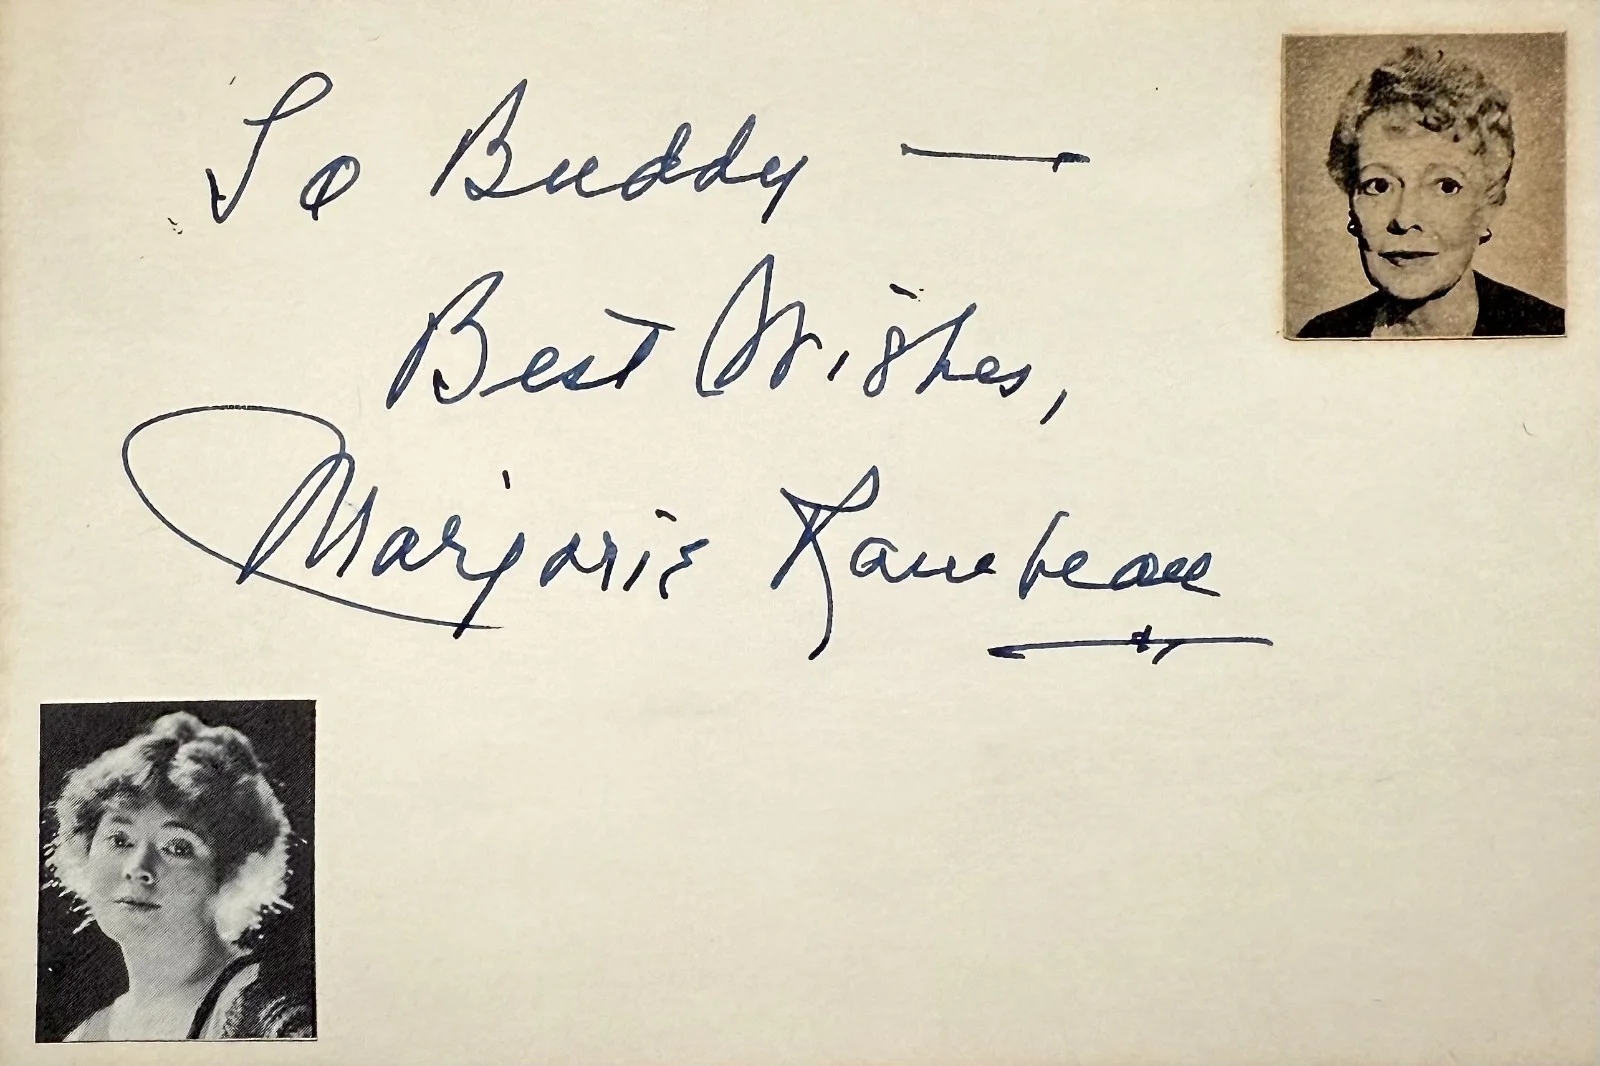 To Buddy —
Best Wishes,
Marjorie Rambeau